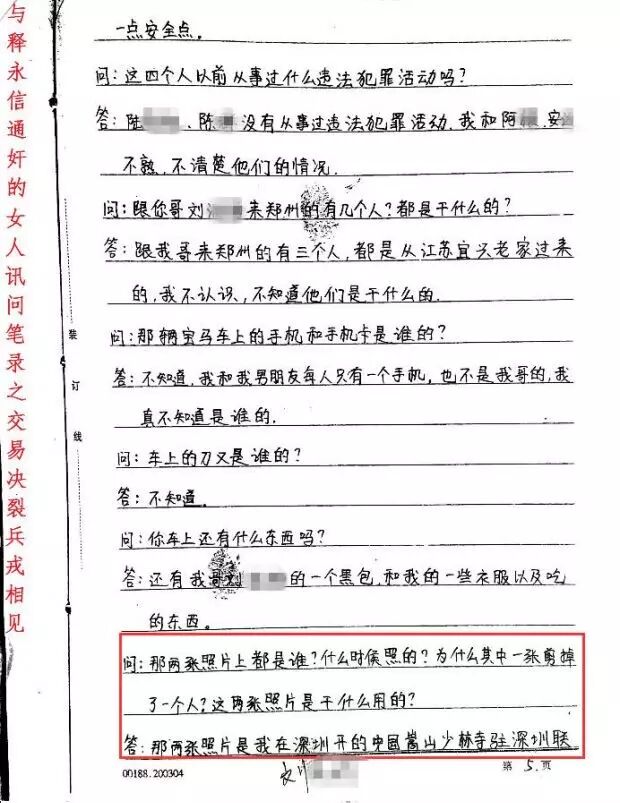 与释永信通奸的女人讯问笔录之交易决裂兵戎相见
装订线
一点安全点。
问:这四个人以前从事过什么违法犯罪活动吗?
答:陆、陈没有从事过违法犯罪活动,我和阿、安
不熟,不清楚他们的情况.
问:跟你哥刘来郑州的有几个人?都是干什么的?
答:跟我哥来郑州的有三个人,都是从江苏宜兴老家过来
的,我不认识,不知道他们是干什么的.
问:那辆宝马车上的手机和手机卡是谁的?
答:不知道,我和我男朋友每人只有一个手机,也不是我哥的,我
真不知道是谁的.
问:车上的刀又是谁的?
答:不知道.
问:你车上还有什么东西吗?
答:还有我哥刘的一个黑包,和我的一些衣服以及吃
的东西。
问:那两张照片上都是谁?什么时候照的?为什么其中一张剪掉
了一个人?这两张照片是干什么用的?
答:那两张照片是我在深圳开的中国嵩山少林寺驻深圳联
00188.200304
第5.页